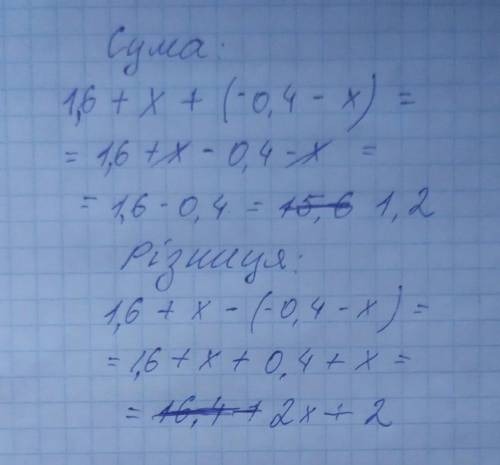 Сума:
1,6 + x + (-0,4 - x) =
= 1,6 + x - 0,4 - x =
= 1,6 - 0,4 = 15,6 1,2
Різниця:
1,6 + x - (-0,4 - x) =
= 1,6 + x + 0,4 + x =
= 16,4 + 2x + 2